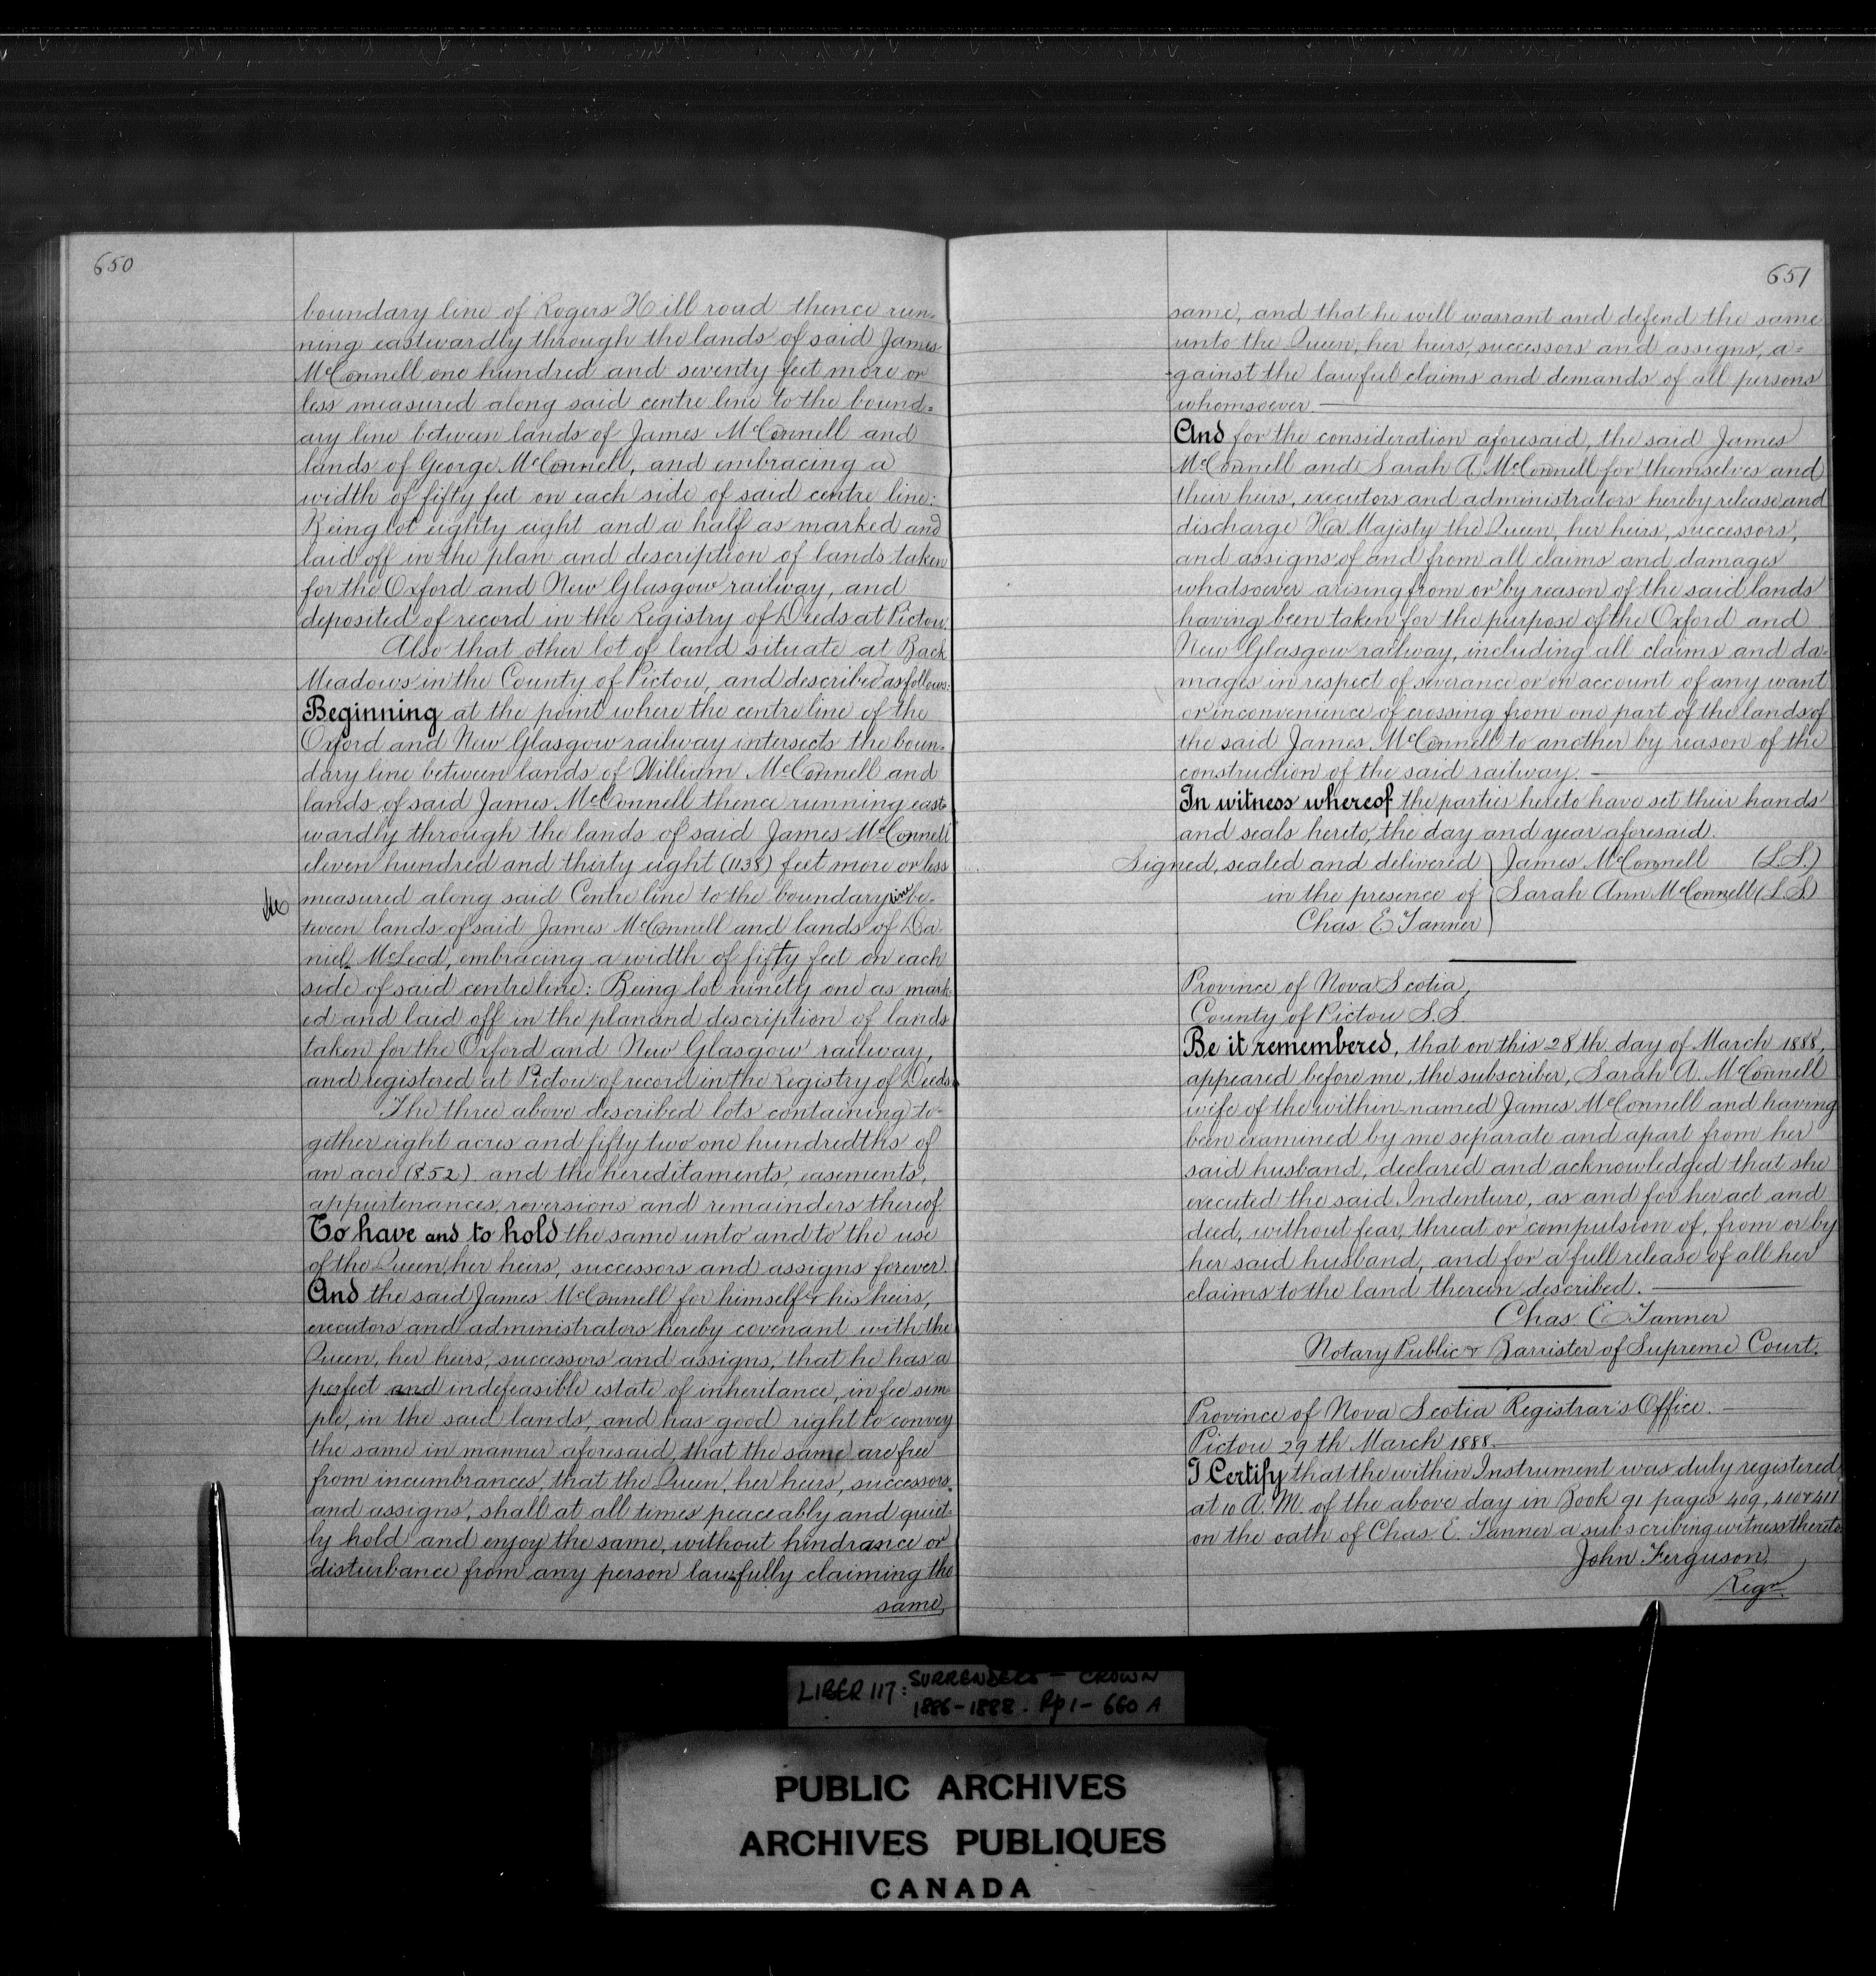 650
boundary line of Rogers Hill road thence run=
ning eastwardly through the lands of said James
McConnell one hundred and seventy feet more or
less measured along said centre line to the bound=
ary line between lands of James McConnell and
lands of George McConnell, and embracing a
width of fifty feet on each side of said centre line:
Being lot eighty eight and a half as marked and
laid off in the plan and description of lands taken
for the Oxford and New Glasgow railway, and
deposited of record in the Registry of Deeds at Pictou.
Also that other lot of land situate at Back
Meadows in the County of Pictou, and described as follows:
Beginning at the point where the centre line of the
Oxford and New Glasgow railway intersects the boun=
dary line between lands of William McConnell and
lands of said James McConnell thence running east=
wardly through the lands of said James McConnell
eleven hundred and thirty eight (1138) feet more or less
measured along said Centre line to the boundary line be-
tween lands of said James McConnell and lands of Da-
niel McLeod, embracing a width of fifty feet on each
side of said centre line: Being lot ninety one as mark-
ed and laid off in the plan and description of lands
taken for the Oxford and New Glasgow railway,
and registered at Pictou of record in the Registry of Deeds.
The three above described lots containing to-
gether eight acres and fifty two one hundredths of
an acre (8.52) and the hereditaments, easements,
appurtenances, reversions and remainders thereof.
To have and to hold the same unto and to the use
of the Queen, her heirs, successors and assigns forever.
And the said James McConnell for himself & his heirs,
executors and administrators hereby covenant with the
Queen, her heirs, successors and assigns, that he has a
perfect and indefeasible estate of inheritance, in fee sim-
ple, in the said lands, and has good right to convey
the same in manner aforesaid, that the same are free
from incumbrances, that the Queen, her heirs, successors,
and assigns, shall at all times peaceably and quiet-
ly hold and enjoy the same, without hindrance or
disturbance from any person lawfully claiming the
same,
651
same, and that he will warrant and defend the same
unto the Queen, her heirs, successors and assigns, a=
-gainst the lawful claims and demands of all persons
whomsoever.
And for the consideration aforesaid, the said James
McConnell and Sarah A. McConnell for themselves and
their heirs, executors and administrators hereby release and
discharge Her Majesty the Queen, her heirs, successors,
and assigns of and from all claims and damages
whatsoever arising from or by reason of the said lands
having been taken for the purpose of the Oxford and
New Glasgow railway, including all claims and da-
mages in respect of severance or on account of any want
or inconvenience of crossing from one part of the lands of
the said James McConnell to another by reason of the
construction of the said railway.
In witness whereof the parties hereto have set their hands
and seals hereto, the day and year aforesaid.
Signed, sealed and delivered } James McConnell (L.S.)
in the presence of } Sarah Ann McConnell (L.S.)
Chas E Tanner }
Province of Nova Scotia,
County of Pictou S.S
Be it remembered, that on this 28th day of March 1888,
appeared before me, the subscriber, Sarah A. McConnell
wife of the within-named James McConnell and having
been examined by me separate and apart from her
said husband, declared and acknowledged that she
executed the said Indenture, as and for her act and
deed, without fear, threat or compulsion of, from or by
her said husband, and for a full release of all her
claims to the land therein described.
Chas E Tanner
Notary Public & Barrister of Supreme Court.
Province of Nova Scotia Registrar's Office.
Pictou 29th March 1888.
I Certify that the within Instrument was duly registered
at 10 A.M. of the above day in Book 91 pages 409, 410 & 411
on the oath of Chas E. Tanner a subscribing witness thereto.
John Ferguson,
Regr.
LIBER 117: SURRENDERS - CROWN
1886-1888. Pp 1-660 A
PUBLIC ARCHIVES
ARCHIVES PUBLIQUES
CANADA